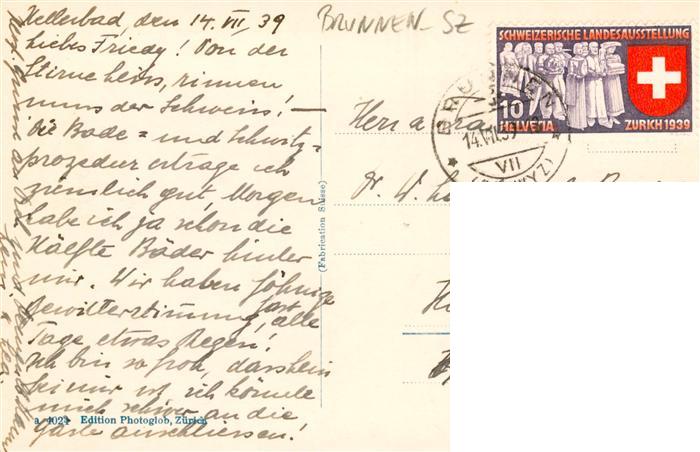 Hellerbad, den 14. VII, 39
liebes Friedy! Von der
Stirne heiss, rinnen
muss der Schweiss! —
Die Bade = und Schwitz =
prozedur ertrage ich
ziemlich gut, Morgen
habe ich ja schon die
Hälfte Bäder hinter
mir. Wir haben föhnige
Gewitterstimmung, fast alle
Tage etwas Regen!
Ich bin so froh, dass
bei mir ist, ich könnte
mich schwer an die
Gäste anschliessen!
BRUNNEN-SZ
SCHWEIZERISCHE LANDESAUSSTELLUNG
10
HELVETIA ZÜRICH 1939
BRUNNEN
14.VII.39
VII
(SCHWYZ)
Herr
Dr. W.
(Fabrication Suisse)
a 4024 Edition Photoglob, Zürich